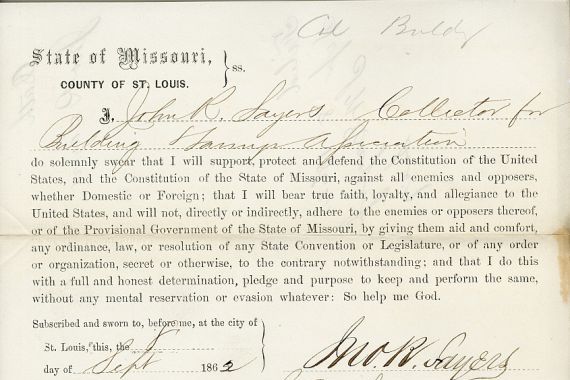 Col
State of Missouri,
ss.
COUNTY OF ST. LOUIS.
I, John R. Sayers Collector for
Building & Savings Association
do solemnly swear that I will support, protect and defend the Constitution of the United
States, and the Constitution of the State of Missouri, against all enemies and opposers,
whether Domestic or Foreign; that I will bear true faith, loyalty, and allegiance to the
United States, and will not, directly or indirectly, adhere to the enemies or opposers thereof,
or of the Provisional Government of the State of Missouri, by giving them aid and comfort,
any ordinance, law, or resolution of any State Convention or Legislature, or of any order
or organization, secret or otherwise, to the contrary notwithstanding; and that I do this
with a full and honest determination, pledge and purpose to keep and perform the same,
without any mental reservation or evasion whatever: So help me God.
Subscribed and sworn to, before me, at the city of
St. Louis, this, the 8
day of Sept 1862
Jno. R. Sayers